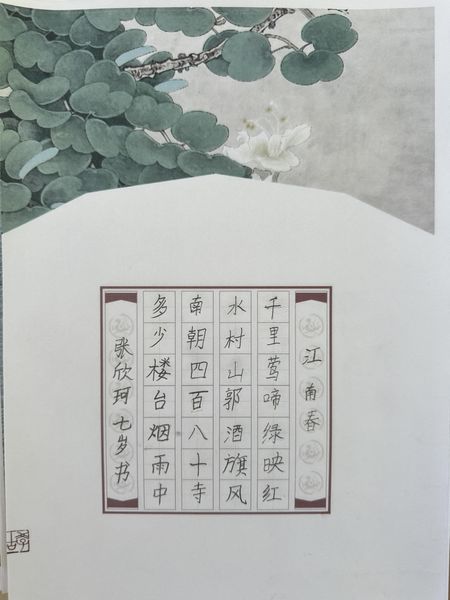 江南春
千里莺啼绿映红
水村山郭酒旗风
南朝四百八十寺
多少楼台烟雨中
张欣珂七岁书